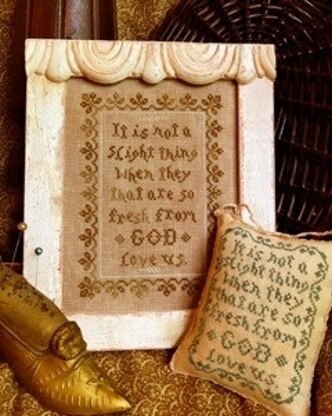 It is not a
slight thing
when they
that are so
fresh from
GOD
love us.
It is not a
slight thing
when they
that are so
fresh from
GOD
love us.